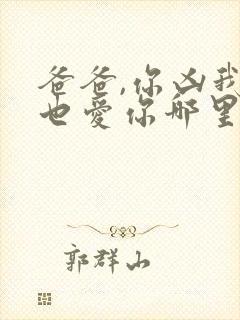 爸爸,你凶我
也爱你哪里
郭群山